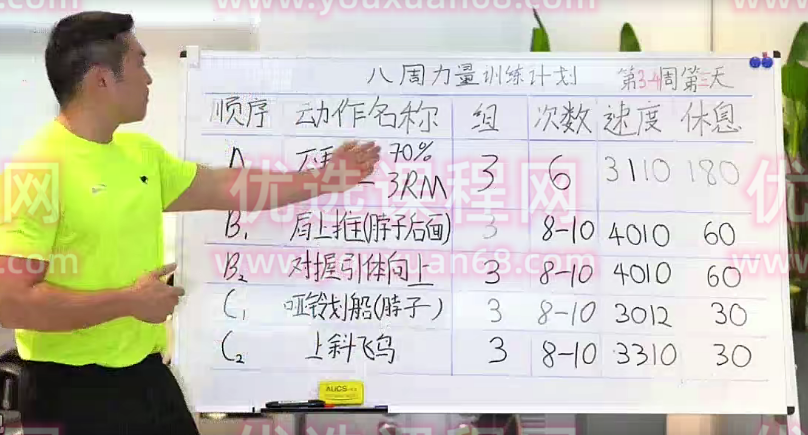 www.youxuan68.com
八周力量训练计划 第3-4周第三天
顺序 动作名称 组 次数 速度 休息
A 70% 3RM 3 6 3110 180
优选课程网
B1 肩上推(脖子后面) 3 8-10 4010 60
www.youxuan68.com
B2 对握引体向上 3 8-10 4010 60
C1 哑铃划船(脖子) 3 8-10 3012 30
C2 上斜飞鸟 3 8-10 3310 30
AUCS
优选课程网